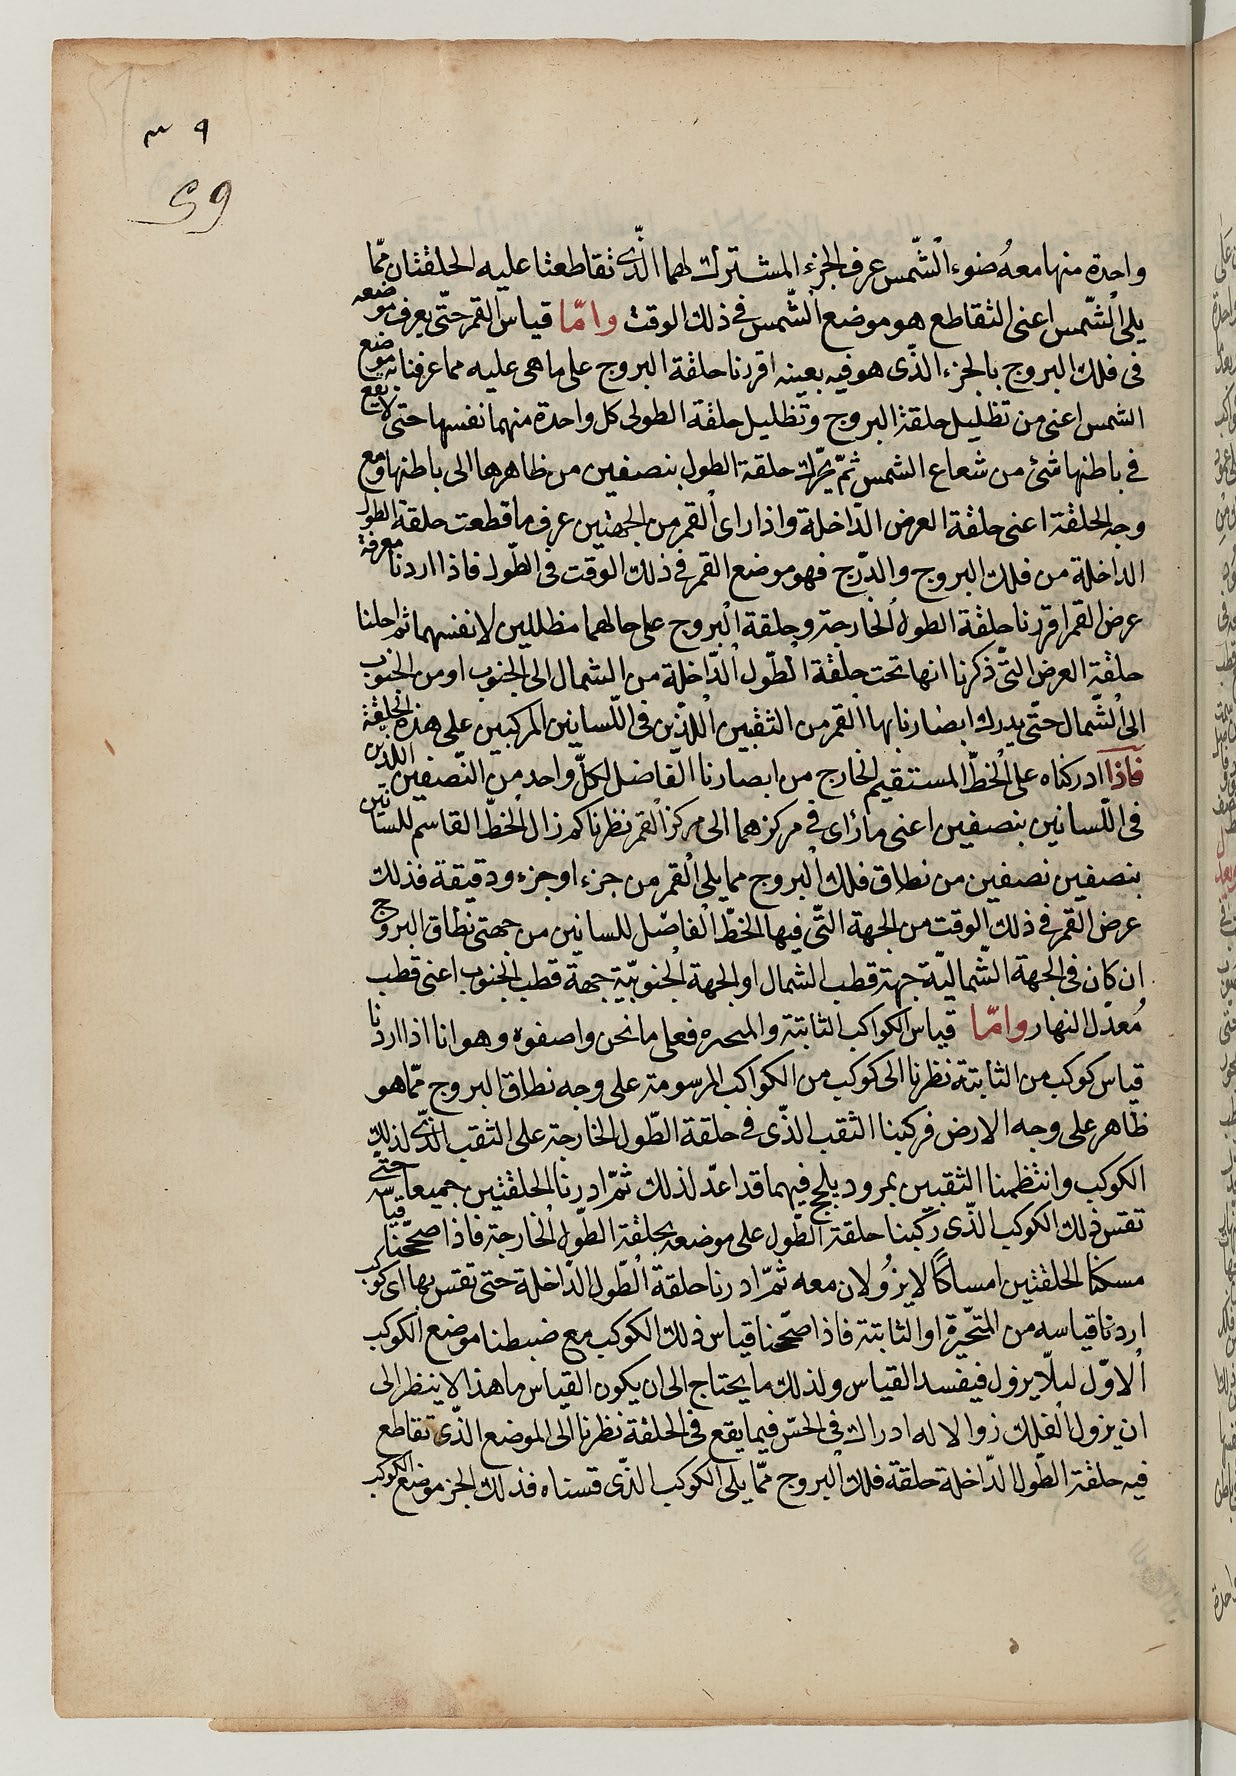 ٣٩
59
واحدة منها معهُ ضوء الشّمس عرف الجزء المشترك لهما الّذى تقاطعتا عليه الحلقتان ممّا
يلى الشّمس اعنى التقاطع هو موضع الشّمس فى ذلك الوقت وامّا قياس القمر حتّى يعرف موضعه
فى فلك البروج بالجزء الذّى هو فيه بعينه اقررنا حلقة البروج على ما هى عليه مما عرفنا به موضع
الشمس اعنى من تظليل حلقة البروج وتظليل حلقة الطولى كل واحدة منهما نفسها حتى لا يقع
فى باطنها شئ من شعاع الشمس ثمّ يحّرك حلقة الطول بنصفين من ظاهرها الى باطنها ومع
وجه الحلقة اعنى حلقة العرض الدّاخلة واذا راى القمر من الجهتين عرف ما قطعت حلقة الطول
الداخلة من فلك البروج والدّرج فهو موضع القمر فى ذلك الوقت فى الطّول فاذا اردنا معرفة
عرض القمر اقررنا حلقة الطول الخارجة وحلقة البروج على حالهما مظللين لانفسهما ثم احلنا
حلقة العرض التّى ذكرنا انها تحت حلقة الطّول الدّاخلة من الشمال الى الجنوب او من الجنوب
الى الشّمال حتّى يدرك ابصارنا بها القمر من الثقبين اللذّين فى اللّسانين المركبين على هذه الحلقة
فاذا ادركناه على الخطّ المستقيم الخارج من ابصارنا الفاضل لكلّ واحد من النّصفين اللذين
فى اللّسانين بنصفين اعنى مارّا فى مركزهما الى مركز القمر نظرنا كم زال الخطّ القاسم للسانين
بنصفين نصفين من نطاق فلك البروج مما يلى القمر من جزء او جزء ودقيقة فذلك
عرض القمر فى ذلك الوقت من الجهة التّى فيها الخطّ الفاصل للسانين من جهتى نطاق البروج
ان كان فى الجهة الشّماليّة جهة قطب الشمال او الجهة الجنوبيّة جهة قطب الجنوب اعنى قطب
مُعدّل النهار وامّا قياس الكواكب الثابتة والمتحيره فعلى ما نحن واصفوه وهو انا اذا اردنا
قياس كوكب من الثابتة نظرنا الى كوكب من الكواكب المرسومة على وجه نطاق البروج ممّا هو
ظاهر على وجه الارض فركبنا الثقب الذّى فى حلقة الطّول الخارجة على الثقب الذّى لذلك
الكوكب وانتظمنا الثقبين بمرود يلج فيهما قد اعدّ لذلك ثمّ ادرنا الحلقتين جميعا حتى
تقس ذلك الكوكب الذّى ركبنا حلقة الطّول على موضعه بحلقة الطّول الخارجة فاذا صحّحنا قياسه
مسكنا الحلقتين امساكًا لا يزُولان معه ثمّ ادرنا حلقة الطّول الدّاخلة حتى تقس بها اى كوكب
اردنا قياسه من المتحّيرة او الثابتة فاذا صحّحنا قياس ذلك الكوكب مع ضبطنا موضع الكوكب
الاوّل لیلّا يزول فيفسد القياس ولذلك ما يحتاج الى ان يكون القياس ماهذا لا ينتظر الى
ان يزول الفلك زوالا له ادراك فى الحسّ فيما يقع فى الحلقة نظرنا الى الموضع الذّى تقاطع
فيه حلقة الطّول الدّاخلة حلقة فلك البروج ممّا يلى الكوكب الذّى قسناه فذلك الجز موضع الكوكب